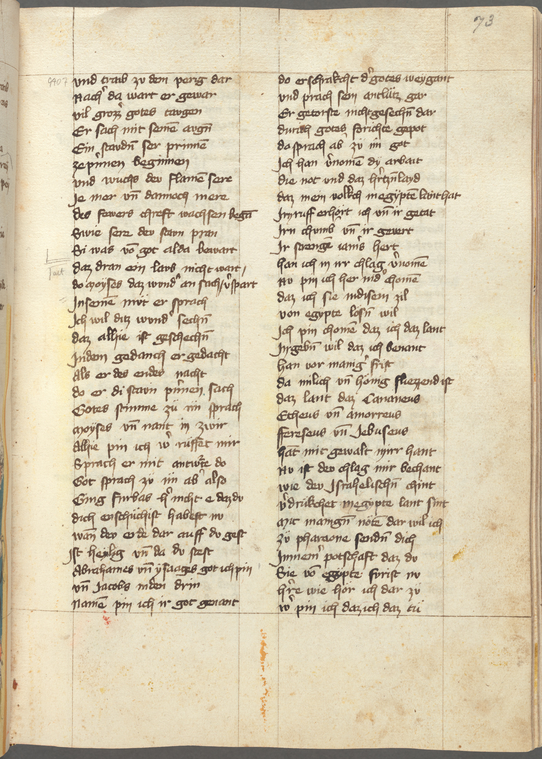 73
und traib zu dem perg dar
Nach daz wart er gewar
vil groz gotes taugen
Er sach mit seinē augn̄
Ein staudn̄ ser prinnē
ze prinnen beginnen
und wuchs der flamēn sere
Je mer vn̄ dannoch mere
des fewers chreft wachsen
Swie sere der staun pran
Si was vō got alda bewart
daz dran ein laub nicht wart
do moyses daz wund an sach
In seinē mut er sprach
Ich wil daz wund sechn̄
daz alhie ist geschechn̄
In dem gedanch er gedacht
Als er des endes nacht
do er di staun prinen sach
Gotes stimme zu im sprach
moyses vn̄ nant in zwir
Alhie pin ich w ruffet mir
Sprach er mit antwurt do
Got sprach zu im ab also
Ging furbas nicht e daz du
dich enschuchist habest nu
wan der erde dar auff du gest
Ist heylig vn̄ da du stest
Abrahames vn̄ ysaages got ich pin
vn̄ Jacobs in den drin
Namē pin ich ir got genant
do erschrakcht d gotes weygant
und prach sein antlutz gar
Er getorste nicht gesechn̄ dar
durch gotes forichte gepot
do sprach ab zu im got
Ich han v̄nomē dy arbait
die not und daz hertzn̄laid
daz mein volkch in egyptē
Im ruff erhort ich vn̄ ir getat
Irn chumb vn̄ ir gevert
Ir strenge hert
han ich in irr chlag v̄nomē
Nu pin ich her nid chomē
daz ich sie in disem zil
von egypte losn̄ wil
Ich pin chomē daz ich daz lant
In gebn̄ wil daz ich benant
han vor manig frist
da milich vn̄ honig fliezzend ist
daz lant daz Cananeus
Etheus vn̄ amorreus
ffereseus vn̄ Jebuseus
hat mit gewalt in irr hant
Nu ist der chlag mir bechant
wie der Israhelischn̄ chint
v̄drukchet in egypte lant sint
auz manign̄ nōtē dar wil ich
zu pharaone sendn̄ dich
In meinē potschaft daz du
Sie vō egypte furist nu
hre wie hor ich dar zu
w pin ich daz ich daz tu